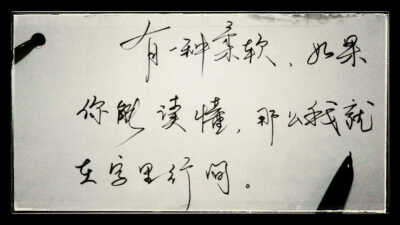 有一种柔软，如果
你能读懂，那么我就
在字里行间。